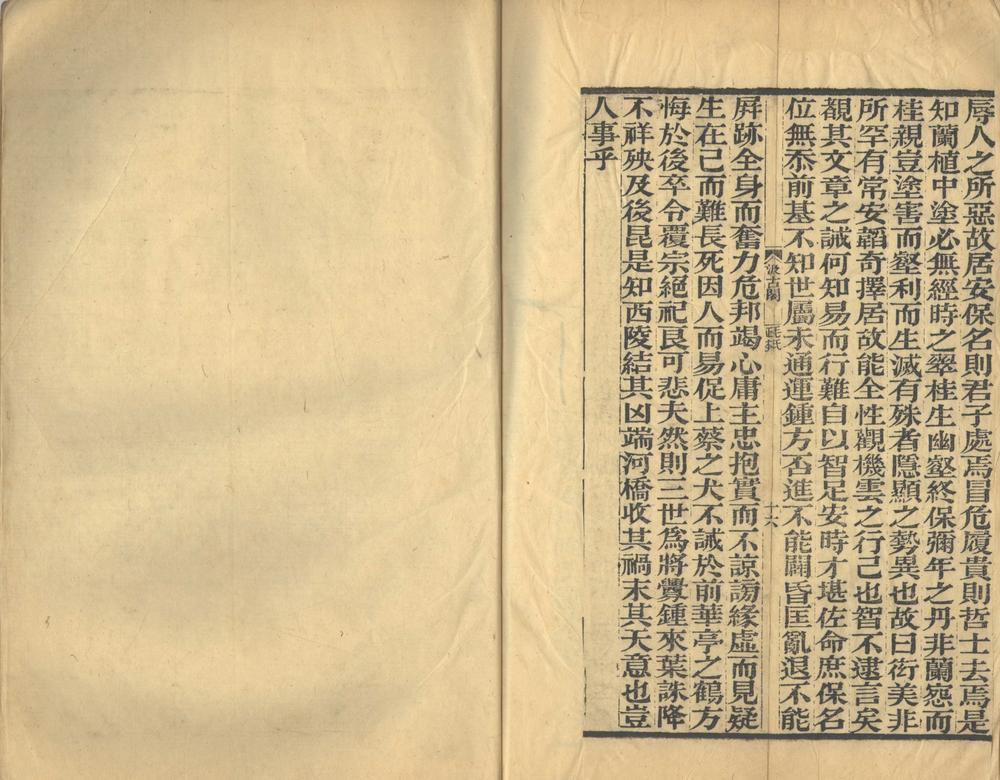 辱人之所惡故居安保名則君子處焉冒危履貴則哲士去焉是
知蘭植中塗必無經時之翠桂生幽壑終保彌年之丹非蘭怨而
桂親豈塗害而壑利而生滅有殊者隱顯之勢異也故曰衒美非
所罕有常安韜奇擇居故能全性觀機雲之行己也智不逮言矣
覩其文章之誡何知易而行難自以智足安時才堪佐命庶保名
位無忝前基不知世屬未通運鍾方否進不能闢昏匡亂退不能
汲古閣
十六
屏跡全身而奮力危邦竭心庸主忠抱實而不諒謗緣虛而見疑
生在己而難長死因人而易促上蔡之犬不誡於前華亭之鶴方
悔於後卒令覆宗絕祀良可悲夫然則三世爲將釁鍾來葉誅降
不祥殃及後昆是知西陵結其凶端河橋收其禍末其天意也豈
人事乎